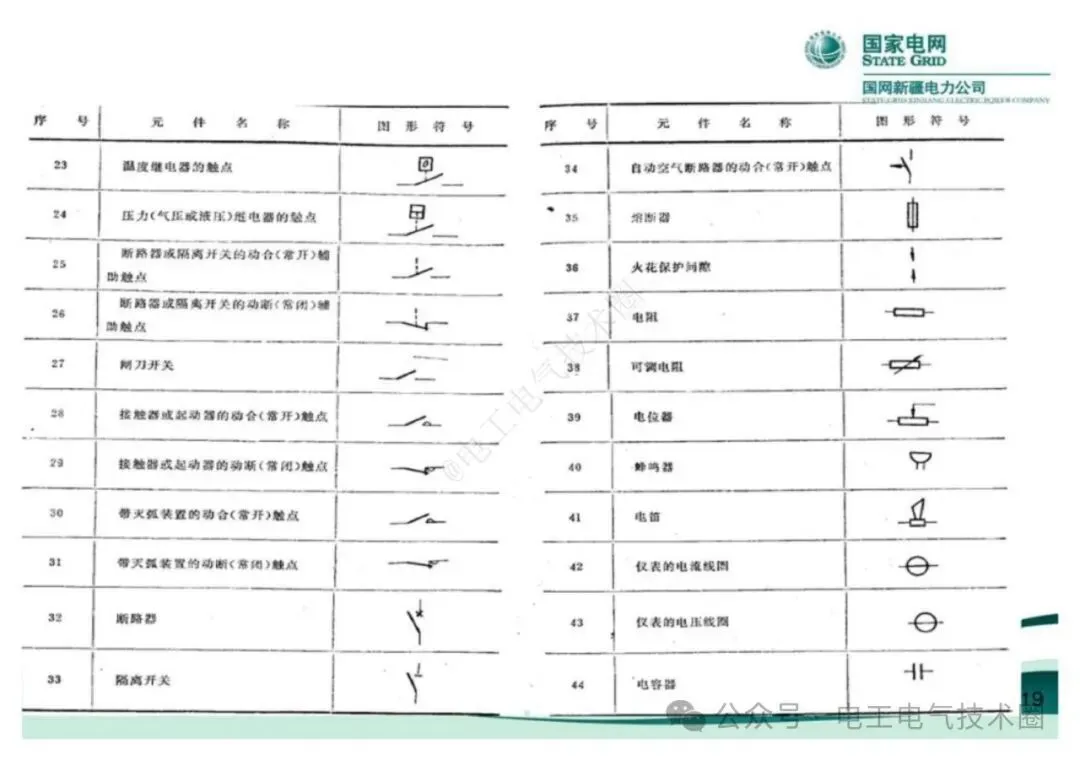 国家电网
STATE GRID
国网新疆电力公司
STATE GRID XINJIANG ELECTRIC POWER COMPANY
序 号 元 件 名 称 图 形 符 号
23 温度继电器的触点
24 压力(气压或液压)继电器的触点
25 断路器或隔离开关的动合(常开)辅
助触点
26 断路器或隔离开关的动断(常闭)辅
助触点
27 闸刀开关
28 接触器或起动器的动合(常开)触点
29 接触器或起动器的动断(常闭)触点
30 带灭弧装置的动合(常开)触点
31 带灭弧装置的动断(常闭)触点
32 断路器
33 隔离开关
序 号 元 件 名 称 图 形 符 号
34 自动空气断路器的动合(常开)触点
35 熔断器
36 火花保护间隙
37 电阻
38 可调电阻
39 电位器
40 蜂鸣器
41 电笛
42 仪表的电流线圈
43 仪表的电压线圈
44 电容器
@电工电气技术圈
19
公众号 · 电工电气技术圈